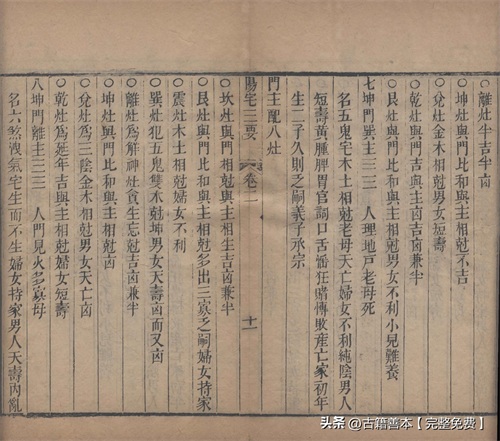 ○離灶半吉半凶
○坤灶與門主相尅不吉
○兌灶金木相尅男女短壽
○乾灶與門吉與主凶吉凶兼半
○艮灶與門主相尅男女不利小兒難養
七坤門巽主三三 人理地戸老母死
名五鬼宅木土相尅老母夭亡婦女不利純陰男人
短壽黃腫脾胃官詞口舌謠狂賭博敗產亡家初年
生二子久則乏嗣義子承宗
門主配八灶
陽宅三要 卷二 十一
○坎灶與門相尅與主相生吉凶兼半
○艮灶與門比和與主相尅多出三寡乏嗣婦女持家
○震灶木土相尅婦女不利
○巽灶犯五鬼雙木尅坤男女夭壽凶而又凶
○離灶爲解神灶貪生忘尅吉凶兼半
○坤灶與門比和與主相尅凶
○兌灶爲三陰金木相尅男女夭亡凶
○乾灶爲延年吉與主相尅婦女短壽
八坤門離主三三 人門見火多寡母
名六煞洩氣宅生而不生婦女持家男人夭壽內亂
头条 @古籍善本【完整免费】